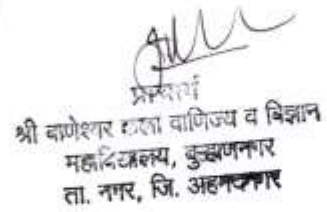 प्राचार्य
श्री बाणेश्वर कला वाणिज्य व विज्ञान
महाविद्यालय, बुऱ्हाणनगर
ता. नगर, जि. अहमदनगर